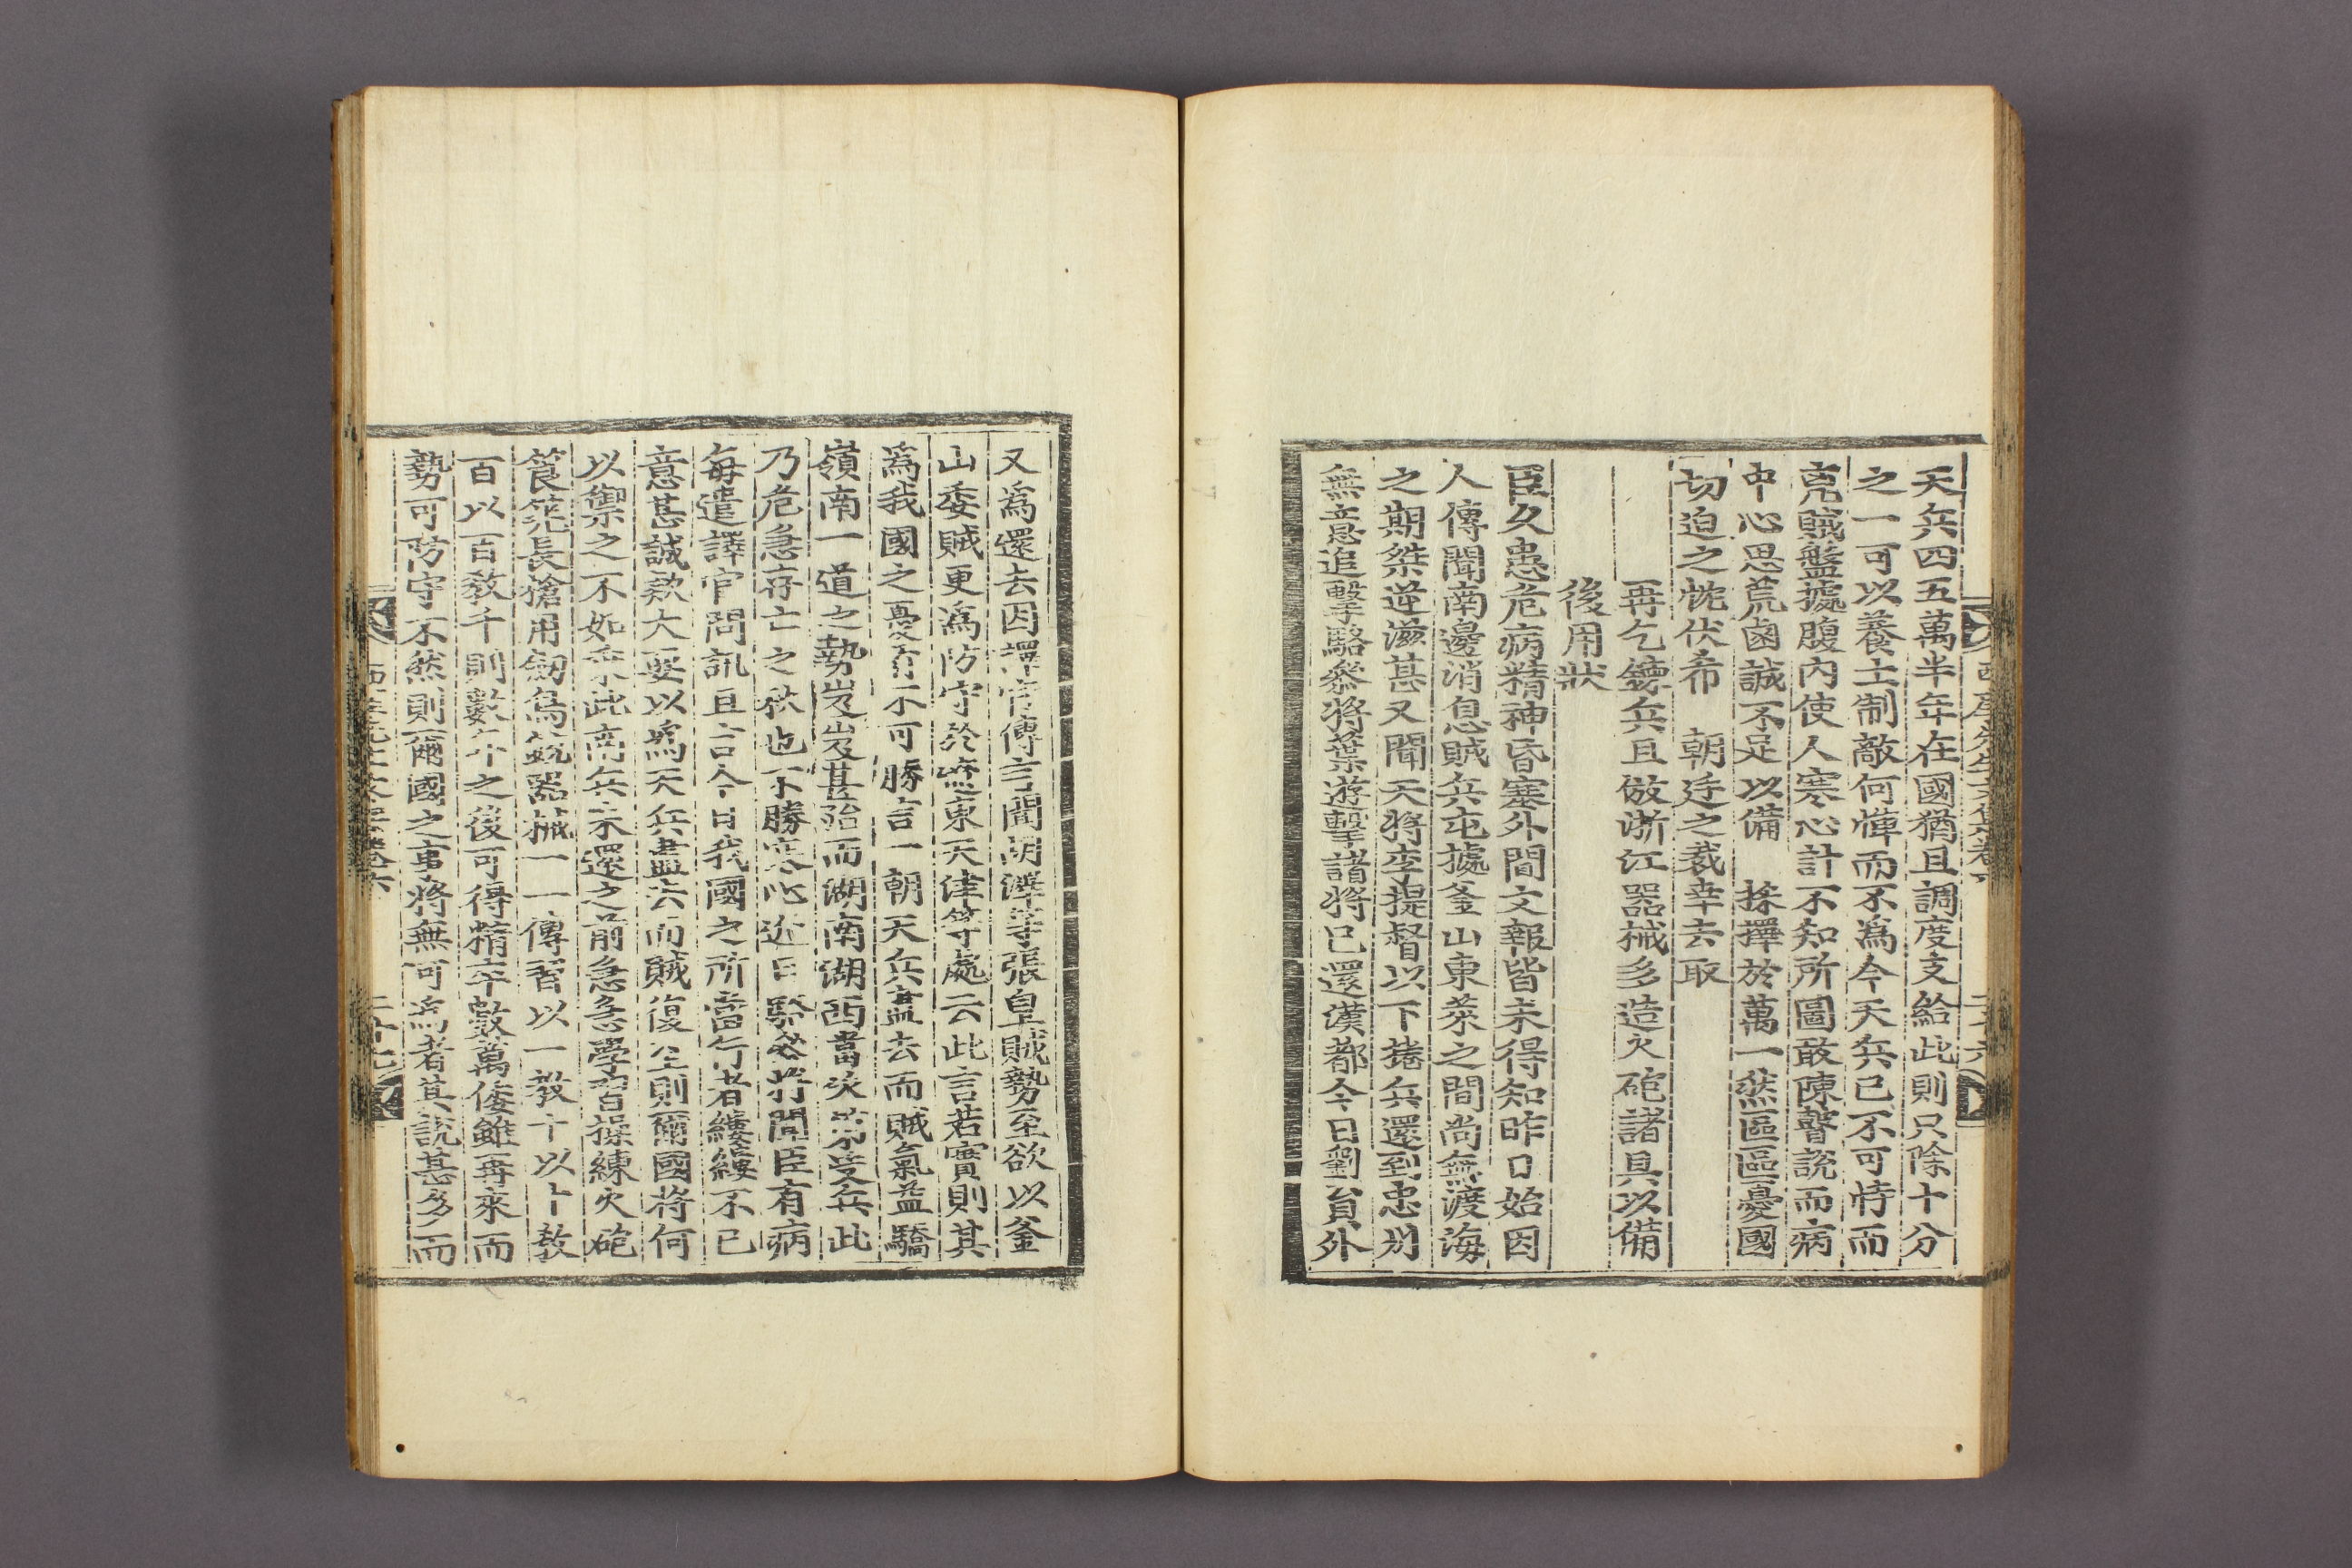 天兵四五萬半年在國猶且調度支給此則只除十分
之一可以養士制敵何憚而不爲今天兵已不可恃而
兇賊盤據腹內使人寒心計不知所圖敢陳瞽說而病
中心思荒鹵誠不足以備 採擇於萬一然區區憂國
切迫之忱伏希 朝廷之裁幸去取
再乞鍊兵且倣浙江器械多造火砲諸具以備
後用狀
臣久患危病精神昏塞外間文報皆未得知昨日始因
人傳聞南邊消息賊兵屯據釜山東萊之間尚無渡海
之期桀逆滋甚又聞天將李提督以下捲兵還到忠州
無意追擊駱參將葉遊擊諸將已還漢都今日劉員外
又爲還去因譯官傳言聞胡澤等張皇賊勢至欲以釜
山委賊更爲防守於遼東天津等處云此言若實則其
爲我國之憂有不可勝言一朝天兵盡去而賊氣益驕
嶺南一道之勢岌岌甚殆而湖南湖西當次第受兵此
乃危急存亡之秋也不勝寒心近日駱參將聞臣有病
每遣譯官問訊且言今日我國之所當行者縷縷不已
意甚誠款大要以爲天兵盡去而賊復至則爾國將何
以禦之不如乘此南兵未還之前急急學習操練火砲
筤筅長槍用劒鳥銃器械一一傳習以一教十以十教
百以百教千則數年之後可得精卒數萬倭雖再來而
勢可防守不然則爾國之事將無可爲者其說甚多而
西厓先生文集卷六
二十七